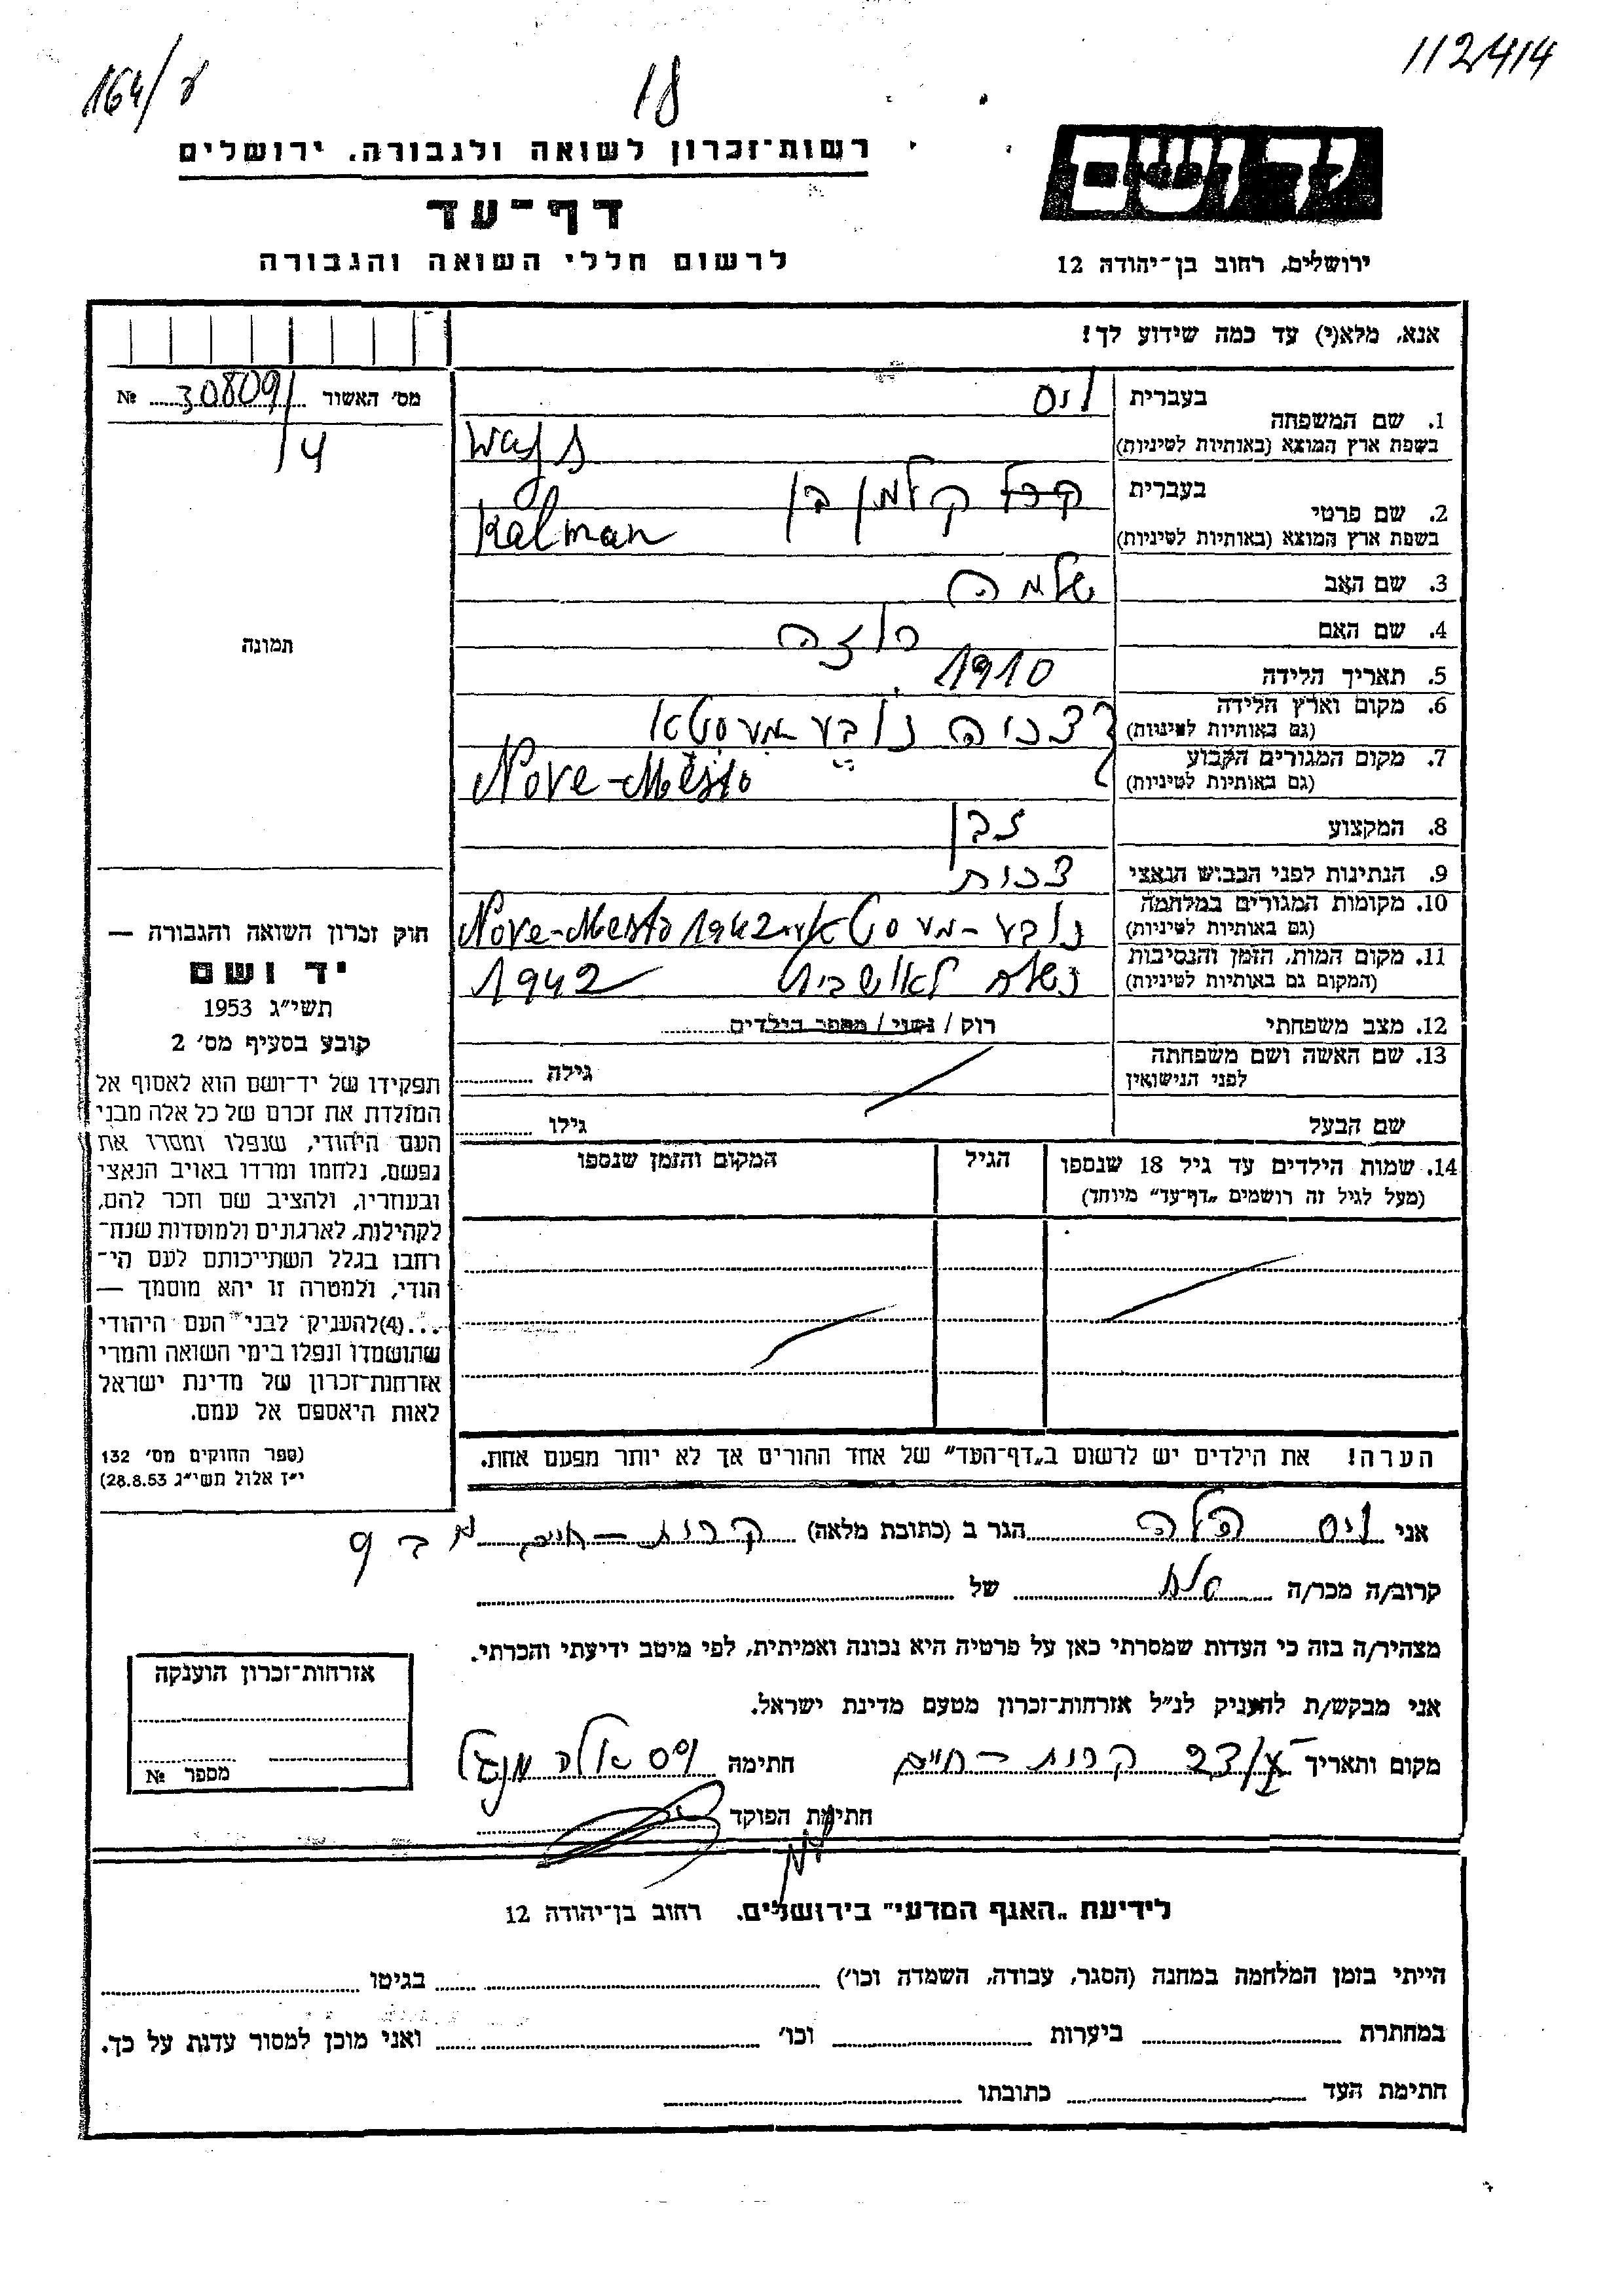 164/ 8
18
112414
רשות־זכרון לשואה ולגבורה. ירושלים
דף־עד
לרשום חללי השואה והגבורה
יד ושם
ירושלים, רחוב בן־יהודה 12
אנא, מלא(י) עד כמה שידוע לך!
מס׳ האשור № 30809/
/4
תמונה
חוק זכרון השואה והגבורה —
יד ושם
תשי״ג 1953
קובע בסעיף מס׳ 2
תפקידו של יד־ושם הוא לאסוף אל
המולדת את זכרם של כל אלה מבני
העם היהודי, שנפלו ומסרו את
נפשם, נלחמו ומרדו באויב הנאצי
ובעוזריו, ולהציב שם וזכר להם,
לקהילות, לארגונים ולמוסדות שנח־
רחבו בגלל השתייכותם לעם הי־
הודי, ולמטרה זו יהא מוסמך —
...(4)להעניק לבני העם היהודי
שהושמדו ונפלו בימי השואה והמרי
אזרחות־זכרון של מדינת ישראל
לאות היאספם אל עמם.
(ספר החוקים מס׳ 132
י״ז אלול תשי״ג 28.8.53)
1. שם המשפחה בעברית ויס
בשפת ארץ המוצא (באותיות לטיניות) Wajs
2. שם פרטי בעברית קלמן בן
בשפת ארץ המוצא (באותיות לטיניות) Kalman
3. שם האב שלמה
4. שם האם רוזה
5. תאריך הלידה 1910
6. מקום וארץ הלידה (גם באותיות לטיניות) צכיה נובע מעסטא
7. מקום המגורים הקבוע (גם באותיות לטיניות) Nove-Mesto
8. המקצוע זבן
9. הנתינות לפני הכבוש הנאצי צכית
10. מקומות המגורים במלחמה (גם באותיות לטיניות) נובע-מעסטא Nove-Mesto 1942
11. מקום המות, הזמן והנסיבות (המקום גם באותיות לטיניות) נשלח לאושביץ 1942
12. מצב משפחתי רוק / נשוי / מספר הילדים
13. שם האשה ושם משפחתה לפני הנישואין גילה
שם הבעל גילו
14. שמות הילדים עד גיל 18 שנספו הגיל המקום והזמן שנספו
(מעל לגיל זה רושמים „דף־עד״ מיוחד)
הערה! את הילדים יש לרשום ב„דף־העד״ של אחד ההורים אך לא יותר מפעם אחת.
אני ויס הגר ב (כתובת מלאה) קרית-חיים
קרוב/ה מכר/ה של
מצהיר/ה בזה כי העדות שמסרתי כאן על פרטיה היא נכונה ואמיתית, לפי מיטב ידיעתי והכרתי.
אני מבקש/ת להעניק לנ״ל אזרחות־זכרון מטעם מדינת ישראל.
מקום ותאריך קרית-חיים חתימה ויס
חתימת הפוקד
אזרחות־זכרון הוענקה
מספר №
לידיעת „האגף המדעי״ בירושלים. רחוב בן־יהודה 12
הייתי בזמן המלחמה במחנה (הסגר, עבודה, השמדה וכו׳) בגיטו
במחתרת ביערות וכו׳ ואני מוכן למסור עדות על כך.
חתימת העד כתובתו